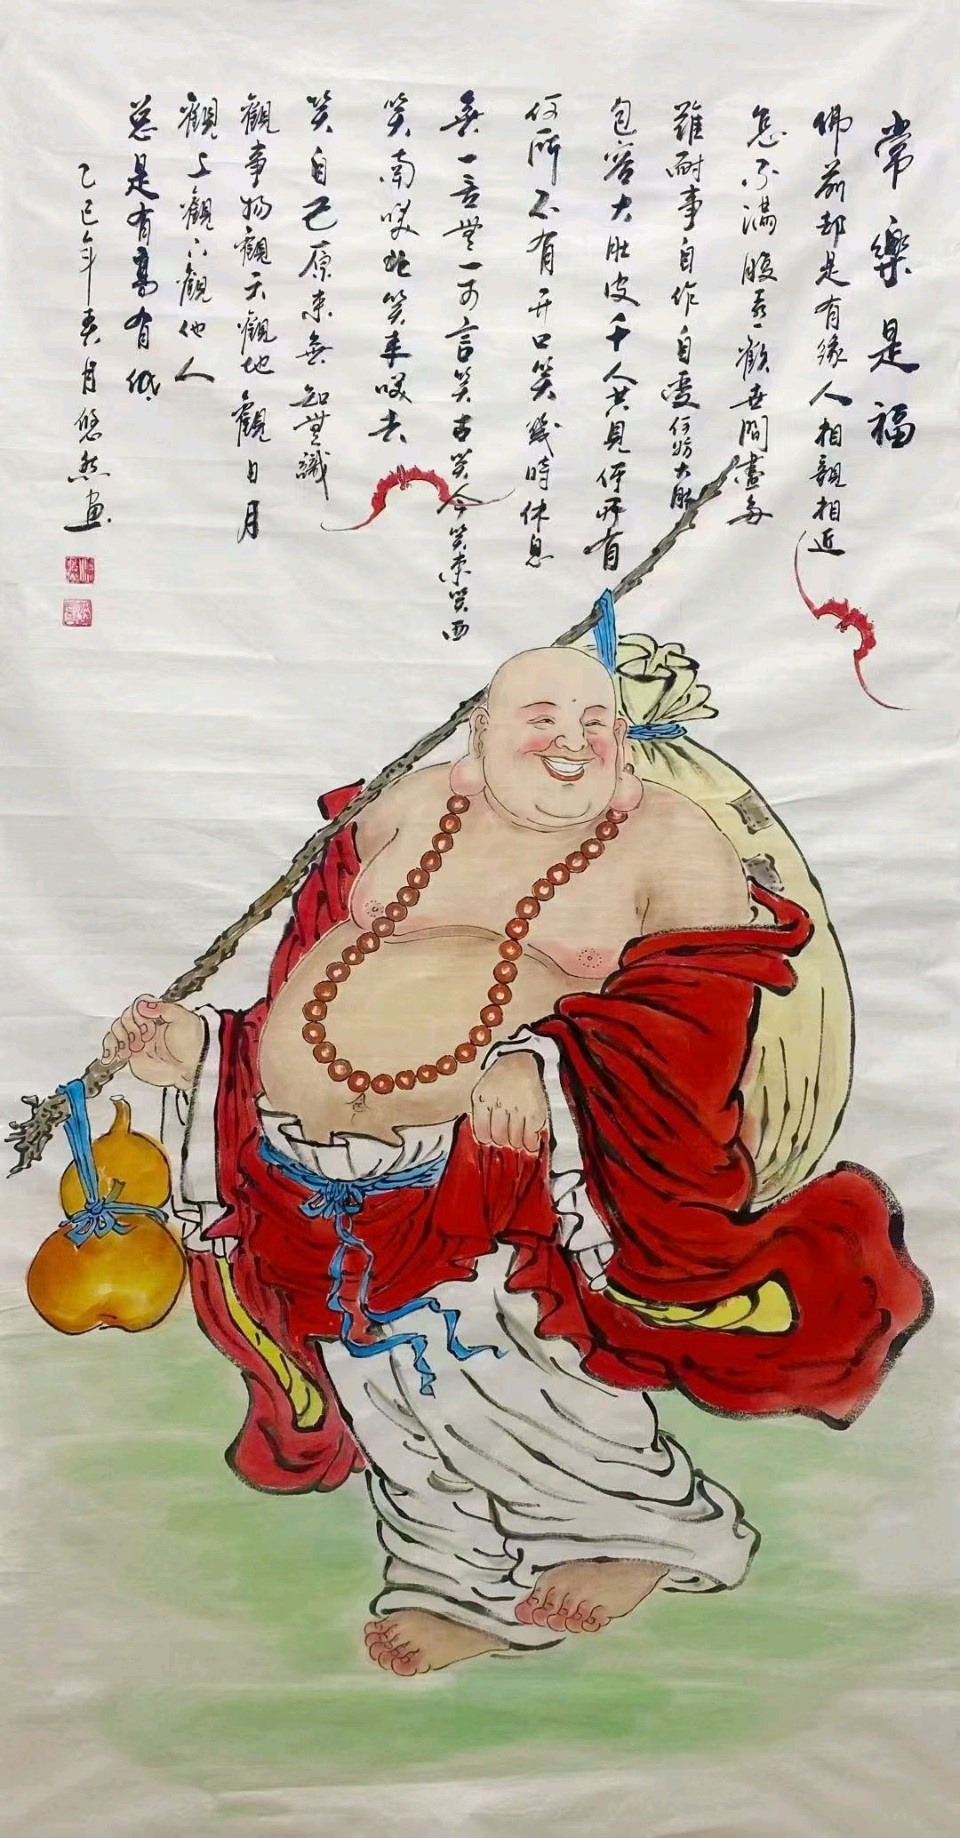 常樂是福
佛前却是有緣人相親相近
怎不滿腹歡世間盡
難耐事自作自受何妨大肚
包容大肚皮千人共見何所有
何所不有开口笑幾時休息
無一言無一可言笑古笑今笑東笑西
笑南笑北笑來笑去
笑自己原來無知無識
觀事物觀天觀地觀日月
觀上觀下觀他人
总是有高有低
乙巳年 月悠然画